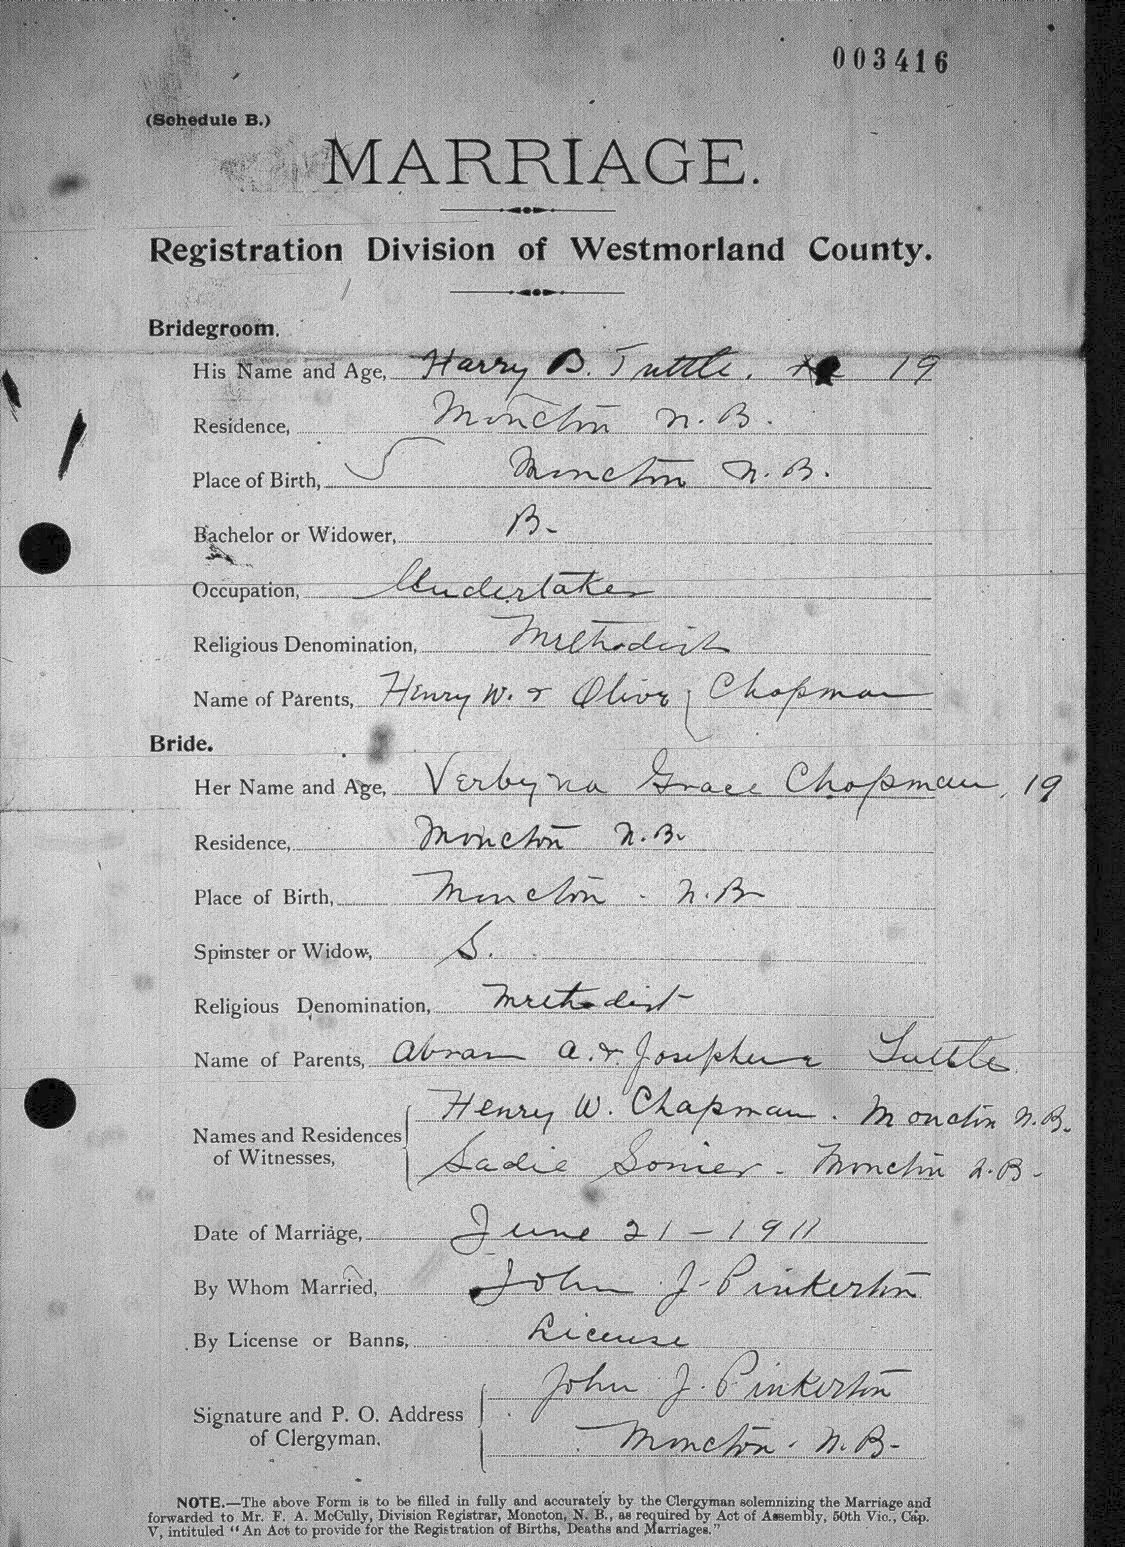 003416
(Schedule B.)
MARRIAGE.
Registration Division of Westmorland County.
Bridegroom.
His Name and Age, Harry B. Tuttle. 19
Residence, Moncton N.B.
Place of Birth, Moncton N.B.
Bachelor or Widower, B-
Occupation, Undertaker
Religious Denomination, Methodist
Name of Parents, Henry W. & Olive } Chapman
Bride.
Her Name and Age, Verbyna Grace Chapman, 19
Residence, Moncton N.B.
Place of Birth, Moncton - N.B
Spinster or Widow, S.
Religious Denomination, Methodist
Name of Parents, Abram A. & Josephene Tuttle
Names and Residences of Witnesses, Henry W. Chapman. Moncton N.B.
Sadie Sonier - Moncton N.B-
Date of Marriage, June 21-1911
By Whom Married, John J. Pinkerton
By License or Banns, License
Signature and P. O. Address of Clergyman. John J. Pinkerton
Moncton. N.B-
NOTE.—The above Form is to be filled in fully and accurately by the Clergyman solemnizing the Marriage and
forwarded to Mr. F. A. McCully, Division Registrar, Moncton, N. B., as required by Act of Assembly, 50th Vic., Cap.
V, intituled "An Act to provide for the Registration of Births, Deaths and Marriages."